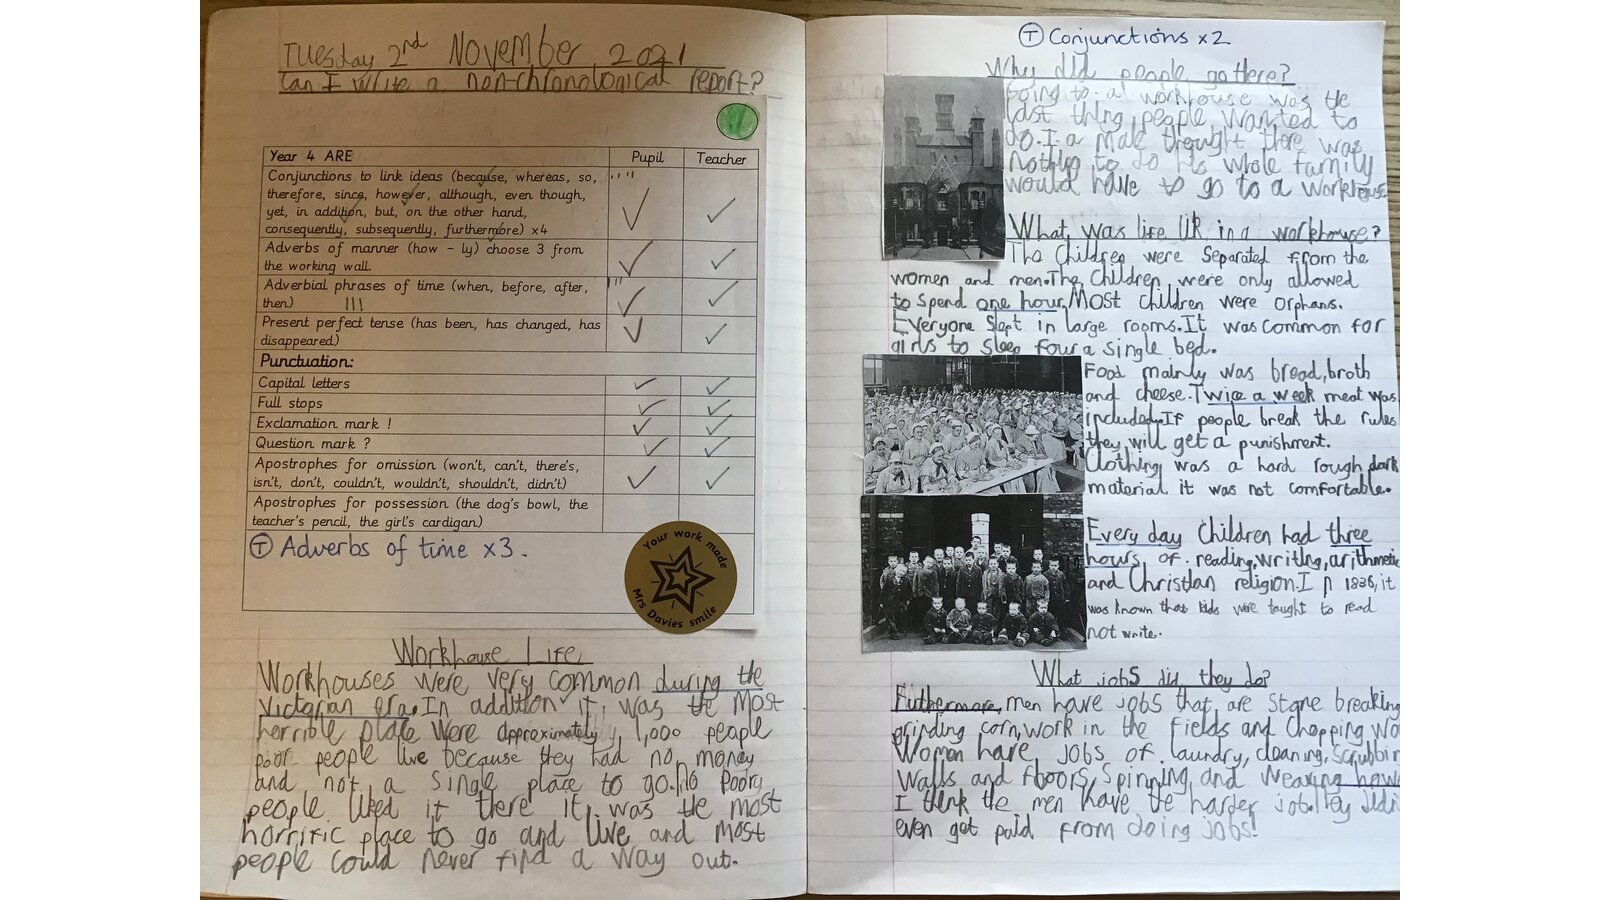 Tuesday 2nd November 2021
Can I write a non-chronological report?
Year 4 ARE Pupil Teacher
Conjunctions to link ideas (because, whereas, so,
therefore, since, however, although, even though,
yet, in addition, but, on the other hand,
consequently, subsequently, furthermore) x4
Adverbs of manner (how - ly) choose 3 from
the working wall.
Adverbial phrases of time (when, before, after,
then)
Present perfect tense (has been, has changed, has
disappeared)
Punctuation:
Capital letters
Full stops
Exclamation mark !
Question mark ?
Apostrophes for omission (won't, can't, there's,
isn't, don't, couldn't, wouldn't, shouldn't, didn't)
Apostrophes for possession (the dog's bowl, the
teacher's pencil, the girl's cardigan)
T Adverbs of time x3.
Your work made
Mrs Davies smile
Workhouse Life
Workhouses were very common during the
Victorian era. In addition it was the most
horrible place were approximately 1,000 people
poor people live because they had no money
and not a single place to go. No poory
people liked it there it was the most
horrific place to go and live and most
people could never find a way out.
T Conjunctions x2
Why did people go there?
Going to a workhouse was the
last thing people wanted to
do. I a male thought there was
nothing to do his whole family
would have to go to a workhouse
What was life lik in a workhouse?
The Children were separated from the
women and men. The Children were only allowed
to spend one hour. Most children were orphans.
Everyone slept in large rooms. It was common for
girls to sleep four a single bed.
Food mainly was bread, broth
and cheese. Twice a week meat was
included. If people break the rules
they will get a punishment.
Clothing was a hard rough dark
material it was not comfortable.
Every day Children had three
hours of reading, writing, arithmetic
and Christian religion. In 1836, it
was known that kids were taught to read
not write.
What jobs did they do?
Futhermore, men have jobs that are stone breaking
grinding corn, work in the fields and chopping wo
Women have jobs of laundry, cleaning, scrubbin
walls and floors, spinning and weaving how
I think the men have the harder job. They didn
even get paid from doing jobs!